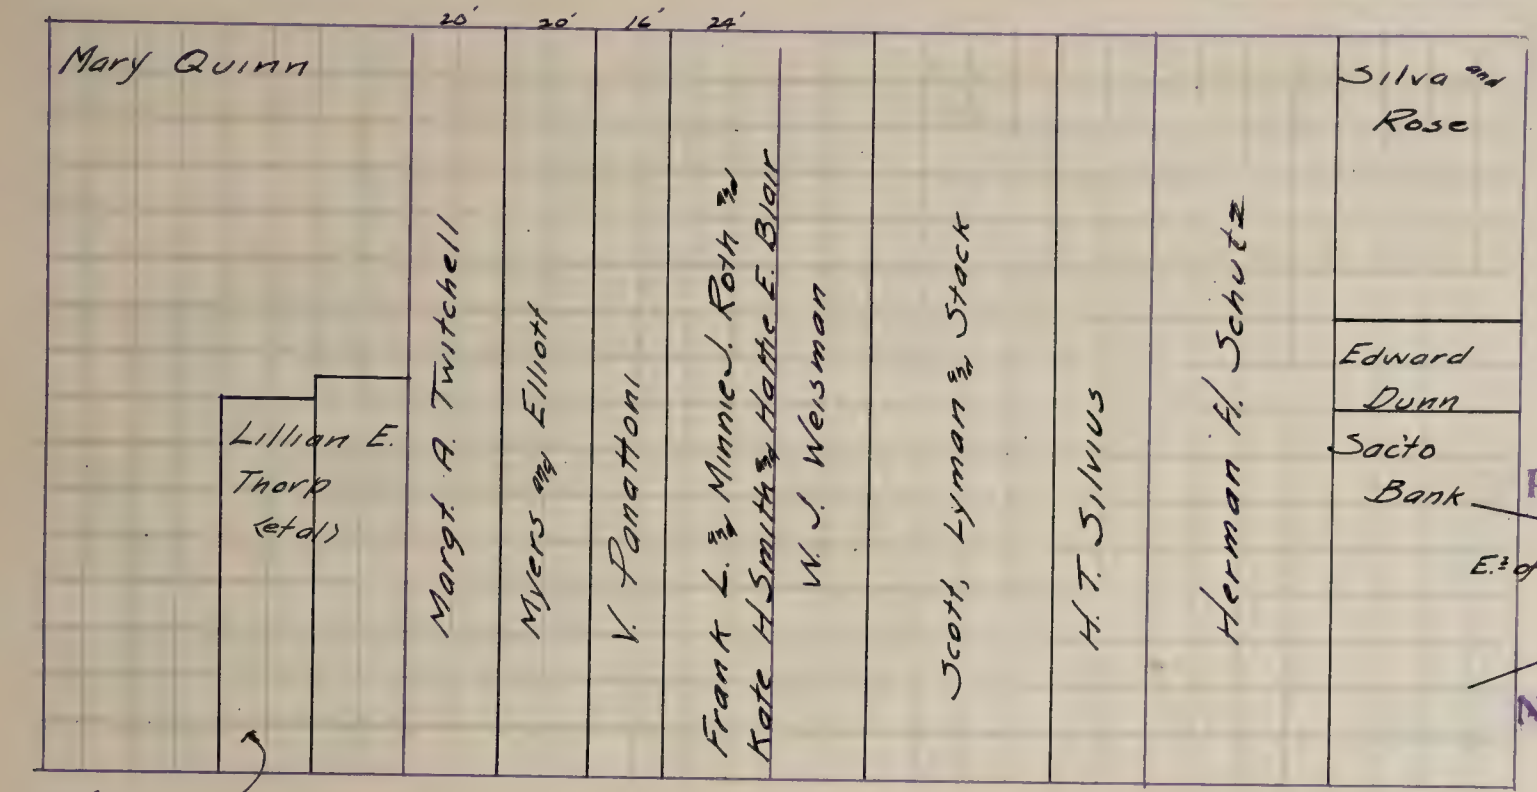 20' 20' 16' 24'
Mary Quinn
Lillian E.
Thorp
(et al)
Margt. A. Twitchell
Myers and Elliott
V. Panattoni
Frank L. and Minnie J. Roth and
Kate H Smith and Hattie E. Blair
W. J. Weisman
Scott, Lyman and Stack
H. T. Silvius
Herman H. Schutz
Silva and
Rose
Edward
Dunn
Sac'to
Bank